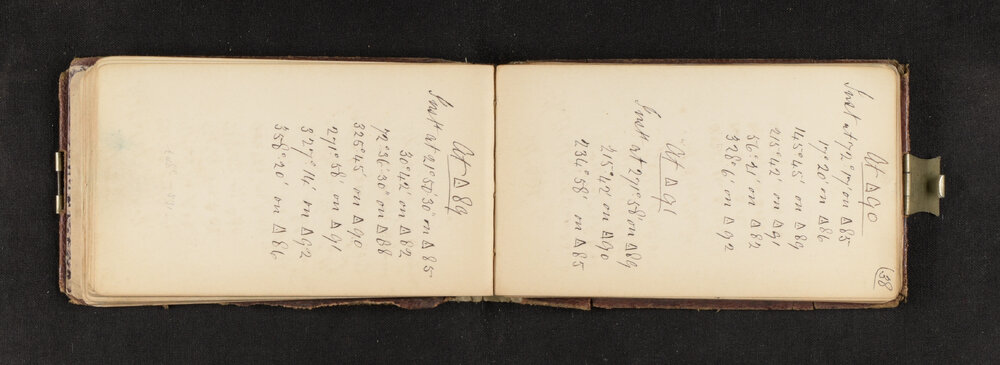 38
At Δ 90
Inst at 72° 19' on Δ 85
17° 20' on Δ 86
145° 45' on Δ 89
215° 42' on Δ 91
36° 21' on Δ 82
328° 6' on Δ 92
At Δ 91
Inst at 271° 58' on Δ 89
215° 42' on Δ 90
234° 58' on Δ 85
At Δ 89
Inst at 21° 50' 30" on Δ 85
30° 42' on Δ 82
72° 36' 30" on Δ 88
325° 45' on Δ 90
271° 58' on Δ 91
327° 14' on Δ 92
358° 20' on Δ 86